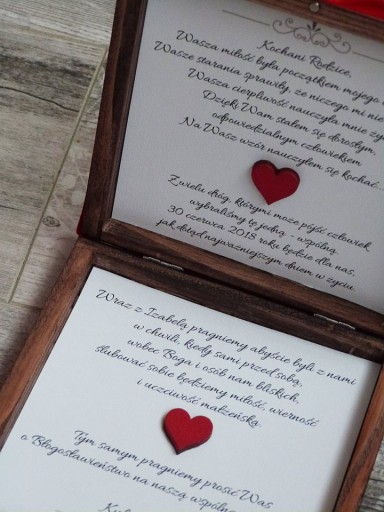 Kochani Rodzice,
Wasza miłość była początkiem mojego
Wasze starania sprawiły, że niczego mi nie
Wasza cierpliwość nauczyła mnie
Dzięki Wam stałem się dorosłym,
odpowiedzialnym człowiekiem.
Na Wasz wzór nauczyłem się kochać.
Z wielu dróg, którymi może pójść człowiek
wybraliśmy tę jedną - wspólną.
30 czerwca 2018 roku będzie dla nas,
jak dotąd najważniejszym dniem w życiu.
Wraz z Izabelą pragniemy abyście byli z nami
w chwili, kiedy sami przed sobą,
wobec Boga i osób nam bliskich,
ślubować sobie będziemy miłość, wierność
i uczciwość małżeńską.
Tym samym pragniemy prosić Was
o Błogosławieństwo na naszą wspólną